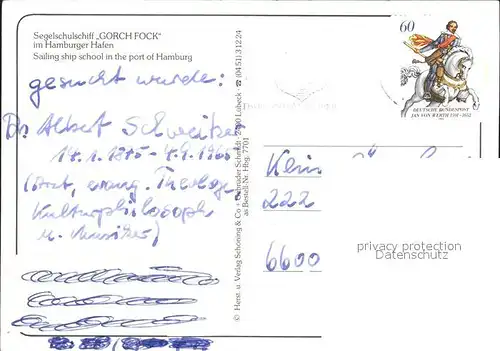 Segelschulschiff „GORCH FOCK“
im Hamburger Hafen
Sailing ship school in the port of Hamburg
gesucht wurde:
Dr. Albert Schweitzer
14.1.1875 - 4.9.1965
(Arzt, evang. Theologe,
Kulturphilosoph
u. Musiker)
© Herst. u. Verlag Schöning & Co + Gebrüder Schmidt · 2400 Lübeck · ☎ (0451) 3 12 24
as Bestell-Nr. Hbg. 7701
60
DEUTSCHE BUNDESPOST
JAN VON WERTH 1591-1652
222
6600
privacy protection
Datenschutz